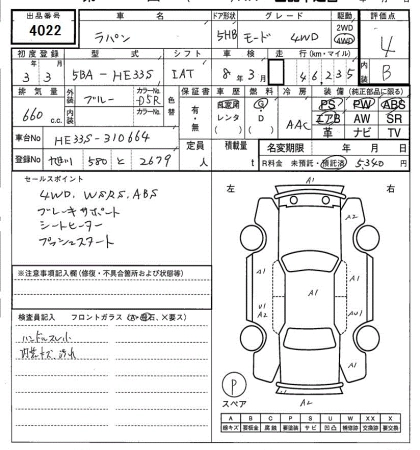 出品番号 車名 ドア形状 グレード 駆動 評価点
4022 ラパン 5HB モード 4WD 2WD 4WD 4
初度登録 型式 シフト 車検 走行(km・マイル) 内 B
3年3月 5BA-HE33S IAT 8年3月 46,235
排気量 外装 色 カラーNo. 色替 保証書 車歴 燃料 冷房 装備(純正部品に限る)
660 c.c. ブルー D5R 有・無 自家用 レンタ ( ) G D ( ) AAC PS PW ABS
エアB AW SR
内装 色 カラーNo. 革 ナビ TV
車台No HE33S-310664 定員 人 積載量 t 名変期限 年 月 日
登録No 旭川 580 と 2679 R料金 未預託・預託済 5,340 円
セールスポイント
4WD, WSRS, ABS
ブレーキサポート
シートヒーター
プッシュスタート
※注意事項記入欄(修復・不具合箇所および状態等)
検査員記入 フロントガラス
ハンドルスレ小
内装キズ、汚れ
左 右
A1
A2
A1 A1
U1 A2 A1 U1 A2
A1
A1
P
スペア
A B C P S U W X XX
線キズ 看板金 腐蝕 要塗装 サビ 凹凸 補修跡 要交換 交換済